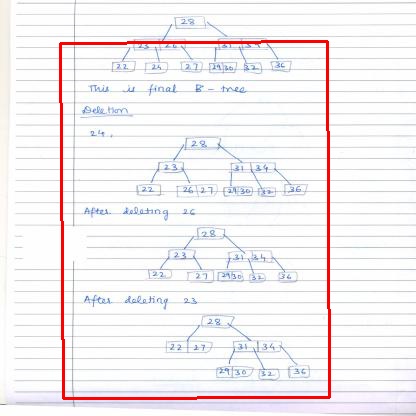 28
23 26 31 34
22 24 27 29 30 32 36
This is final B-tree
Deletion
24,
28
23 31 34
22 26 27 29 30 32 36
After deleting 26
28
23 31 34
22 27 29 30 32 36
After deleting 23
28
22 27 31 34
29 30 32 36